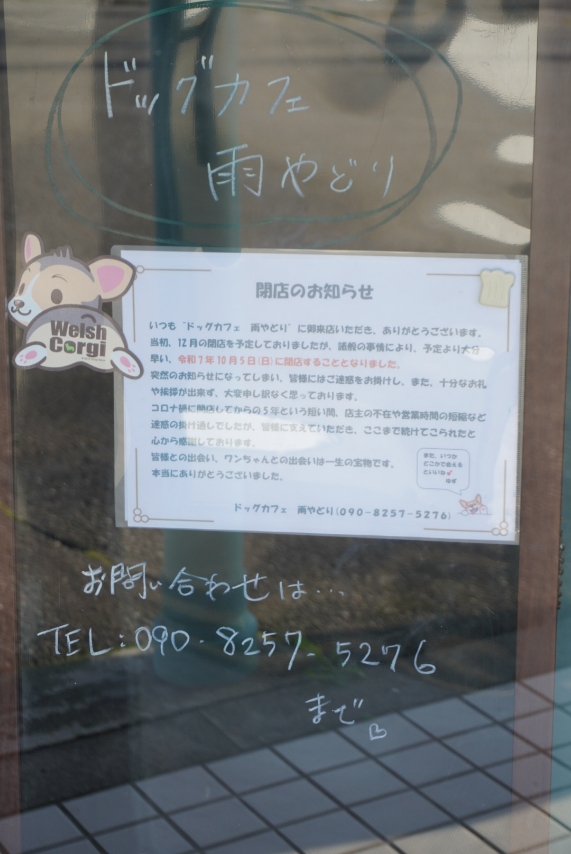 ドッグカフェ
雨やどり
Welsh
Corgi
閉店のお知らせ
いつも"ドッグカフェ 雨やどり"に御来店いただき、ありがとうございます。
当初、12月の閉店を予定しておりましたが、諸般の事情により、予定より大分
早い、令和7年10月5日(日)に閉店することとなりました。
突然のお知らせになってしまい、皆様にはご迷惑をお掛けし、また、十分なお礼
や挨拶が出来ず、大変申し訳なく思っております。
コロナ禍に開店してからの5年という短い間、店主の不在や営業時間の短縮など
迷惑の掛け通しでしたが、皆様に支えていただき、ここまで続けてこられたと
心から感謝しております。
皆様との出会い、ワンちゃんとの出会いは一生の宝物です。
本当にありがとうございました。
また、いつか
どこかで会える
といいね💕
ゆず
ドッグカフェ 雨やどり(090-8257-5276)
お問い合わせは…
TEL:090-8257-5276
まで♡